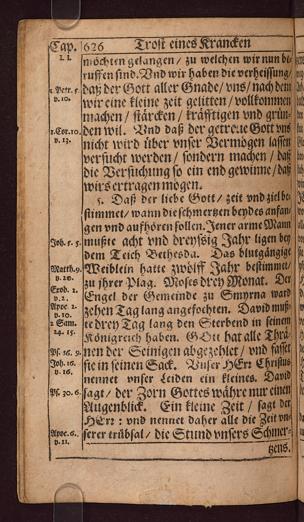 Cap. 626 Trost eines Krancken
möchten gelangen / zu welchen wir nun be-
ruffen sind. Vnd wir haben die verheissung/
daß der Gott aller Gnade/ vns/ nach dem
wir eine kleine zeit gelitten/ vollkommen
machen / stärcken / kräfftigen vnd grün-
den wil. Vnd daß der getreue Gott vns
nicht wird über vnser Vermögen lassen
versucht werden / sondern machen / daß
die Versuchung so ein end gewinne/ daß
wirs ertragen mögen.
5. Daß der liebe Gott/ zeit vnd ziel be-
stimmet / wann die schmertzen beydes anfan-
gen vnd auffhören sollen. Jener arme Mann
mußte acht vnd dreyssig Jahr ligen bey
dem Teich Bethesda. Das blutgängige
Weiblein hatte zwölff Jahr bestimmet/
zu ihrer Plag. Moses drey Monat. Der
Engel der Gemeinde zu Smyrna ward
zehen Tag lang angefochten. David muß-
te drey Tag lang den Sterbend in seinem
Königreich haben. GOtt hat alle Thrä-
nen der Seinigen abgezehlet / vnd fasset
sie in seinen Sack. Vnser HErr Christus
nennet vnser Leiden ein kleines. David
sagt/ der Zorn Gottes währe nur einen
Augenblick. Ein kleine Zeit / sagt der
HErr: vnd nennet daher alle die Zeit vn-
serer trübsal / die Stund vnsers Schmer-
tzens.
1. Petr. 5.
v. 10.
1. Cor. 10.
v. 13.
Joh. 5. 5.
Matth. 9.
v. 20.
Exod. 2.
v. 2.
Apoc. 2.
v. 10.
2 Sam.
24. 15.
Ps. 56. 9.
Joh. 16.
v. 16.
Ps. 30. 6.
Apoc. 6.
v. 11.